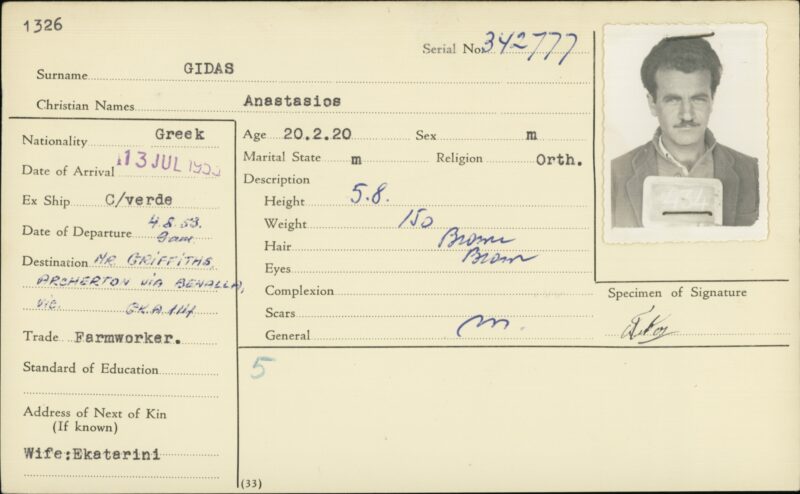 1326
Serial No. 342777
Surname GIDAS
Christian Names Anastasios
Nationality Greek
Date of Arrival 13 JUL 1953
Ex Ship C/verde
Date of Departure 4.8.53.
9am
Destination MR GRIFFITHS,
ARCHERTON VIA BENALLA,
VIC.
Trade Farmworker.
Standard of Education
Address of Next of Kin
(If known)
Wife:Ekatarini
Age 20.2.20 Sex m
Marital State m Religion Orth.
Description
Height 5.8.
Weight 150
Hair Brown
Eyes Brown
Complexion
Scars
General m.
5
(33)
Specimen of Signature